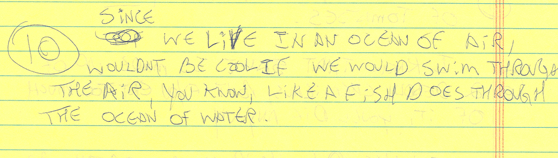 SINCE
10 WE LIVE IN AN OCEAN OF AIR,
WOULDNT BE COOL IF WE WOULD SWIM THROUGH
THE AIR, YOU KNOW, LIKE A FISH DOES THROUGH
THE OCEAN OF WATER.